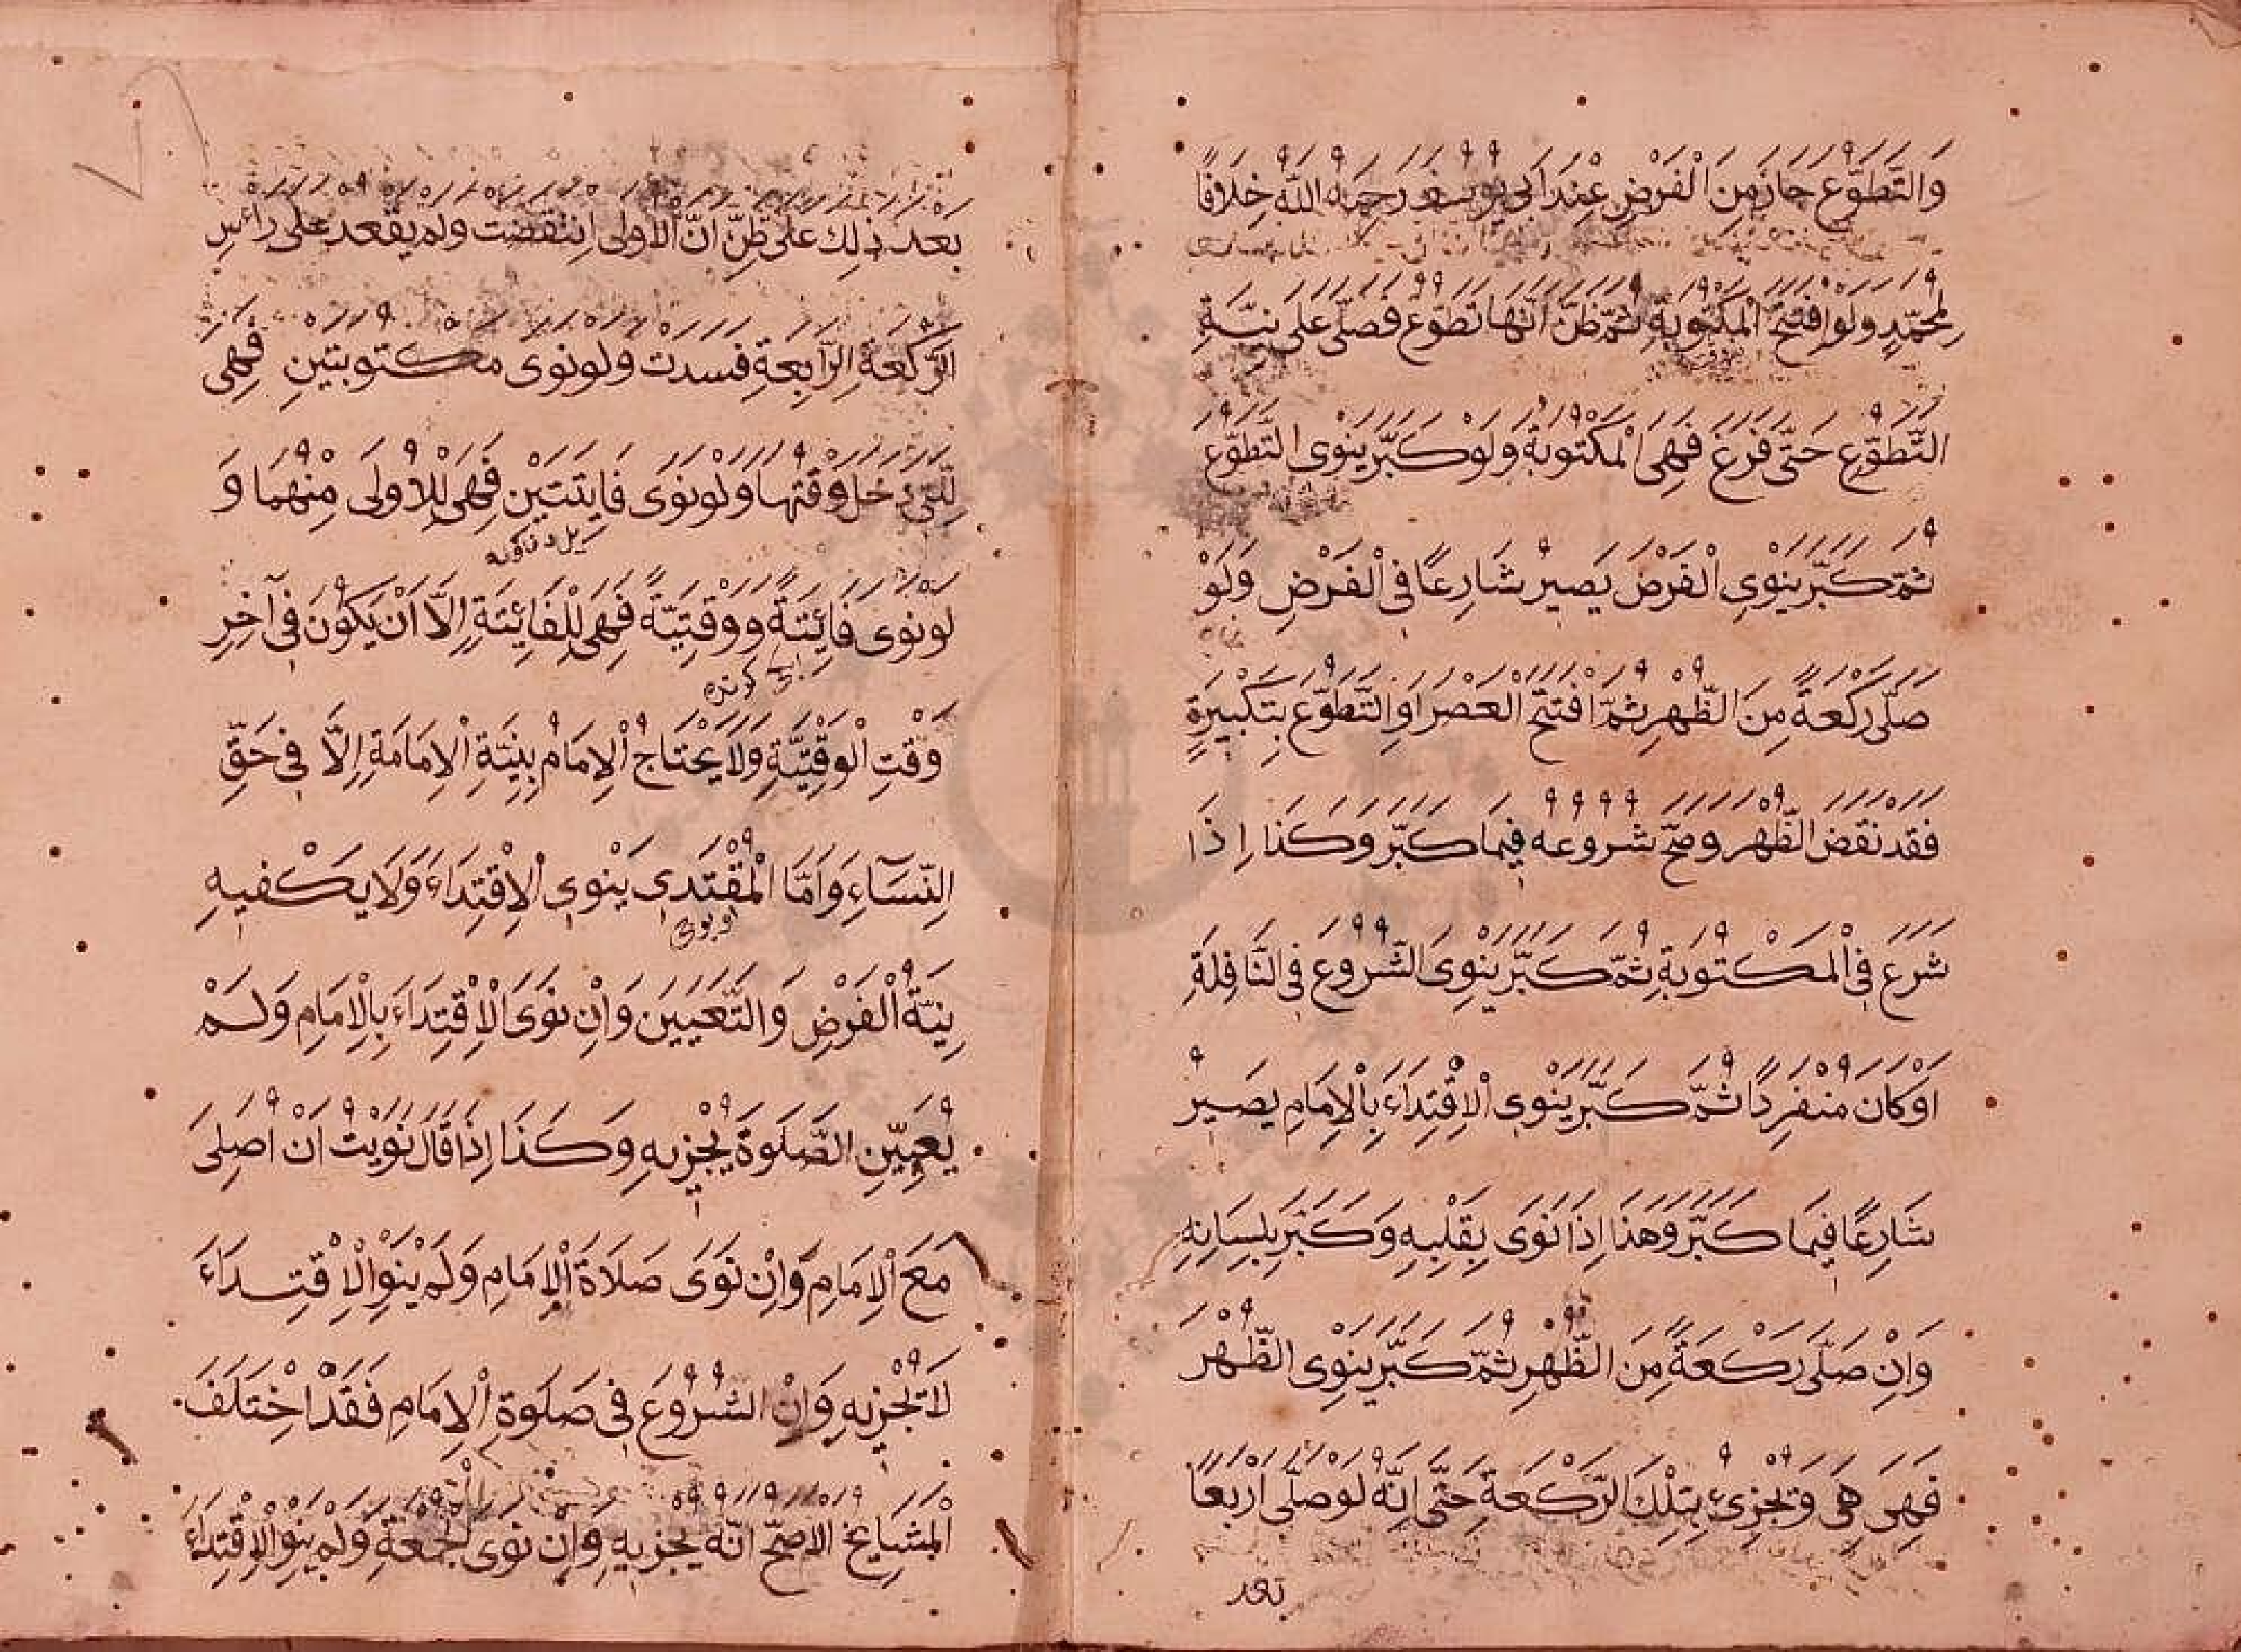 وَالتَّطَوُّعِ جَازَ مِنَ الْفَرْضِ عِنْدَ اَبِي يُوسُفَ رَحِمَهُ اللهُ خِلَافًا
لِمُحَمَّدٍ وَلَوِ افْتَتَحَ الْمَكْتُوبَةَ ثُمَّ ظَنَّ اَنَّهَا تَطَوُّعٌ فَصَلَّى عَلَى نِيَّةِ
التَّطَوُّعِ حَتَّى فَرَغَ فَهِيَ الْمَكْتُوبَةُ وَلَوْ كَبَّرَ يَنْوِي التَّطَوُّعَ
ثُمَّ كَبَّرَ يَنْوِي الْفَرْضَ يَصِيرُ شَارِعًا فِي الْفَرْضِ وَلَوْ
صَلَّى رَكْعَةً مِنَ الظُّهْرِ ثُمَّ افْتَتَحَ الْعَصْرَ اَوِ التَّطَوُّعَ بِتَكْبِيرَةٍ
فَقَدْ نَقَضَ الظُّهْرَ وَصَحَّ شُرُوعُهُ فِيمَا كَبَّرَ وَكَذَا اِذَا
شَرَعَ فِي الْمَكْتُوبَةِ ثُمَّ كَبَّرَ يَنْوِي الشُّرُوعَ فِي النَّافِلَةِ
اَوْ كَانَ مُنْفَرِدًا ثُمَّ كَبَّرَ يَنْوِي الْاِقْتِدَاءَ بِالْاِمَامِ يَصِيرُ
شَارِعًا فِيمَا كَبَّرَ وَهَذَا اِذَا نَوَى بِقَلْبِهِ وَكَبَّرَ بِلِسَانِهِ
وَاِنْ صَلَّى رَكْعَةً مِنَ الظُّهْرِ ثُمَّ كَبَّرَ يَنْوِي الظُّهْرَ
فَهِيَ هِيَ وَتُجْزِئُ بِتِلْكَ الرَّكْعَةِ حَتَّى اِنَّهُ لَوْ صَلَّى اَرْبَعًا
بعد
بَعْدَ ذٰلِكَ عَلَى ظَنِّ اَنَّ الْاُولَى اِنْتَقَضَتْ وَلَمْ يَقْعُدْ عَلَى رَأْسِ
الرَّكْعَةِ الرَّابِعَةِ فَسَدَتْ وَلَوْ نَوَى مَكْتُوبَتَيْنِ فَهِيَ
لِلَّتِي دَخَلَ وَقْتُهَا وَلَوْ نَوَى فَايِتَتَيْنِ فَهِيَ لِلْاُولَى مِنْهُمَا وَ
لَوْ نَوَى فَائِتَةً وَوَقْتِيَّةً فَهِيَ لِلْفَائِتَةِ اِلَّا اَنْ يَكُونَ فِي آخِرِ
وَقْتِ الْوَقْتِيَّةِ وَلَا يَحْتَاجُ الْاِمَامُ بِنِيَّةِ الْاِمَامَةِ اِلَّا فِي حَقِّ
النِّسَآءِ وَاَمَّا الْمُقْتَدِي يَنْوِي الْاِقْتِدَاءَ وَلَا يَكْفِيهِ
نِيَّةُ الْفَرْضِ وَالتَّعْيِينِ وَاِنْ نَوَى الْاِقْتِدَاءَ بِالْاِمَامِ وَلَمْ
يُعَيِّنِ الصَّلَوةَ يُجْزِيهِ وَكَذَا اِذَا قَالَ نَوَيْتُ اَنْ اُصَلِّيَ
مَعَ الْاِمَامِ وَاِنْ نَوَى صَلَاةَ الْاِمَامِ وَلَمْ يَنْوِ الْاِقْتِدَاءَ
لَا تُجْزِيهِ وَاِنْ الشُّرُوعَ فِي صَلَوةِ الْاِمَامِ فَقَدْ اخْتَلَفَ
الْمَشَايِخُ الْاَصَحُّ اَنَّهُ يُجْزِيهِ وَاِنْ نَوَى الْجُمُعَةَ وَلَمْ يَنْوِ الْاِقْتِدَاءَ